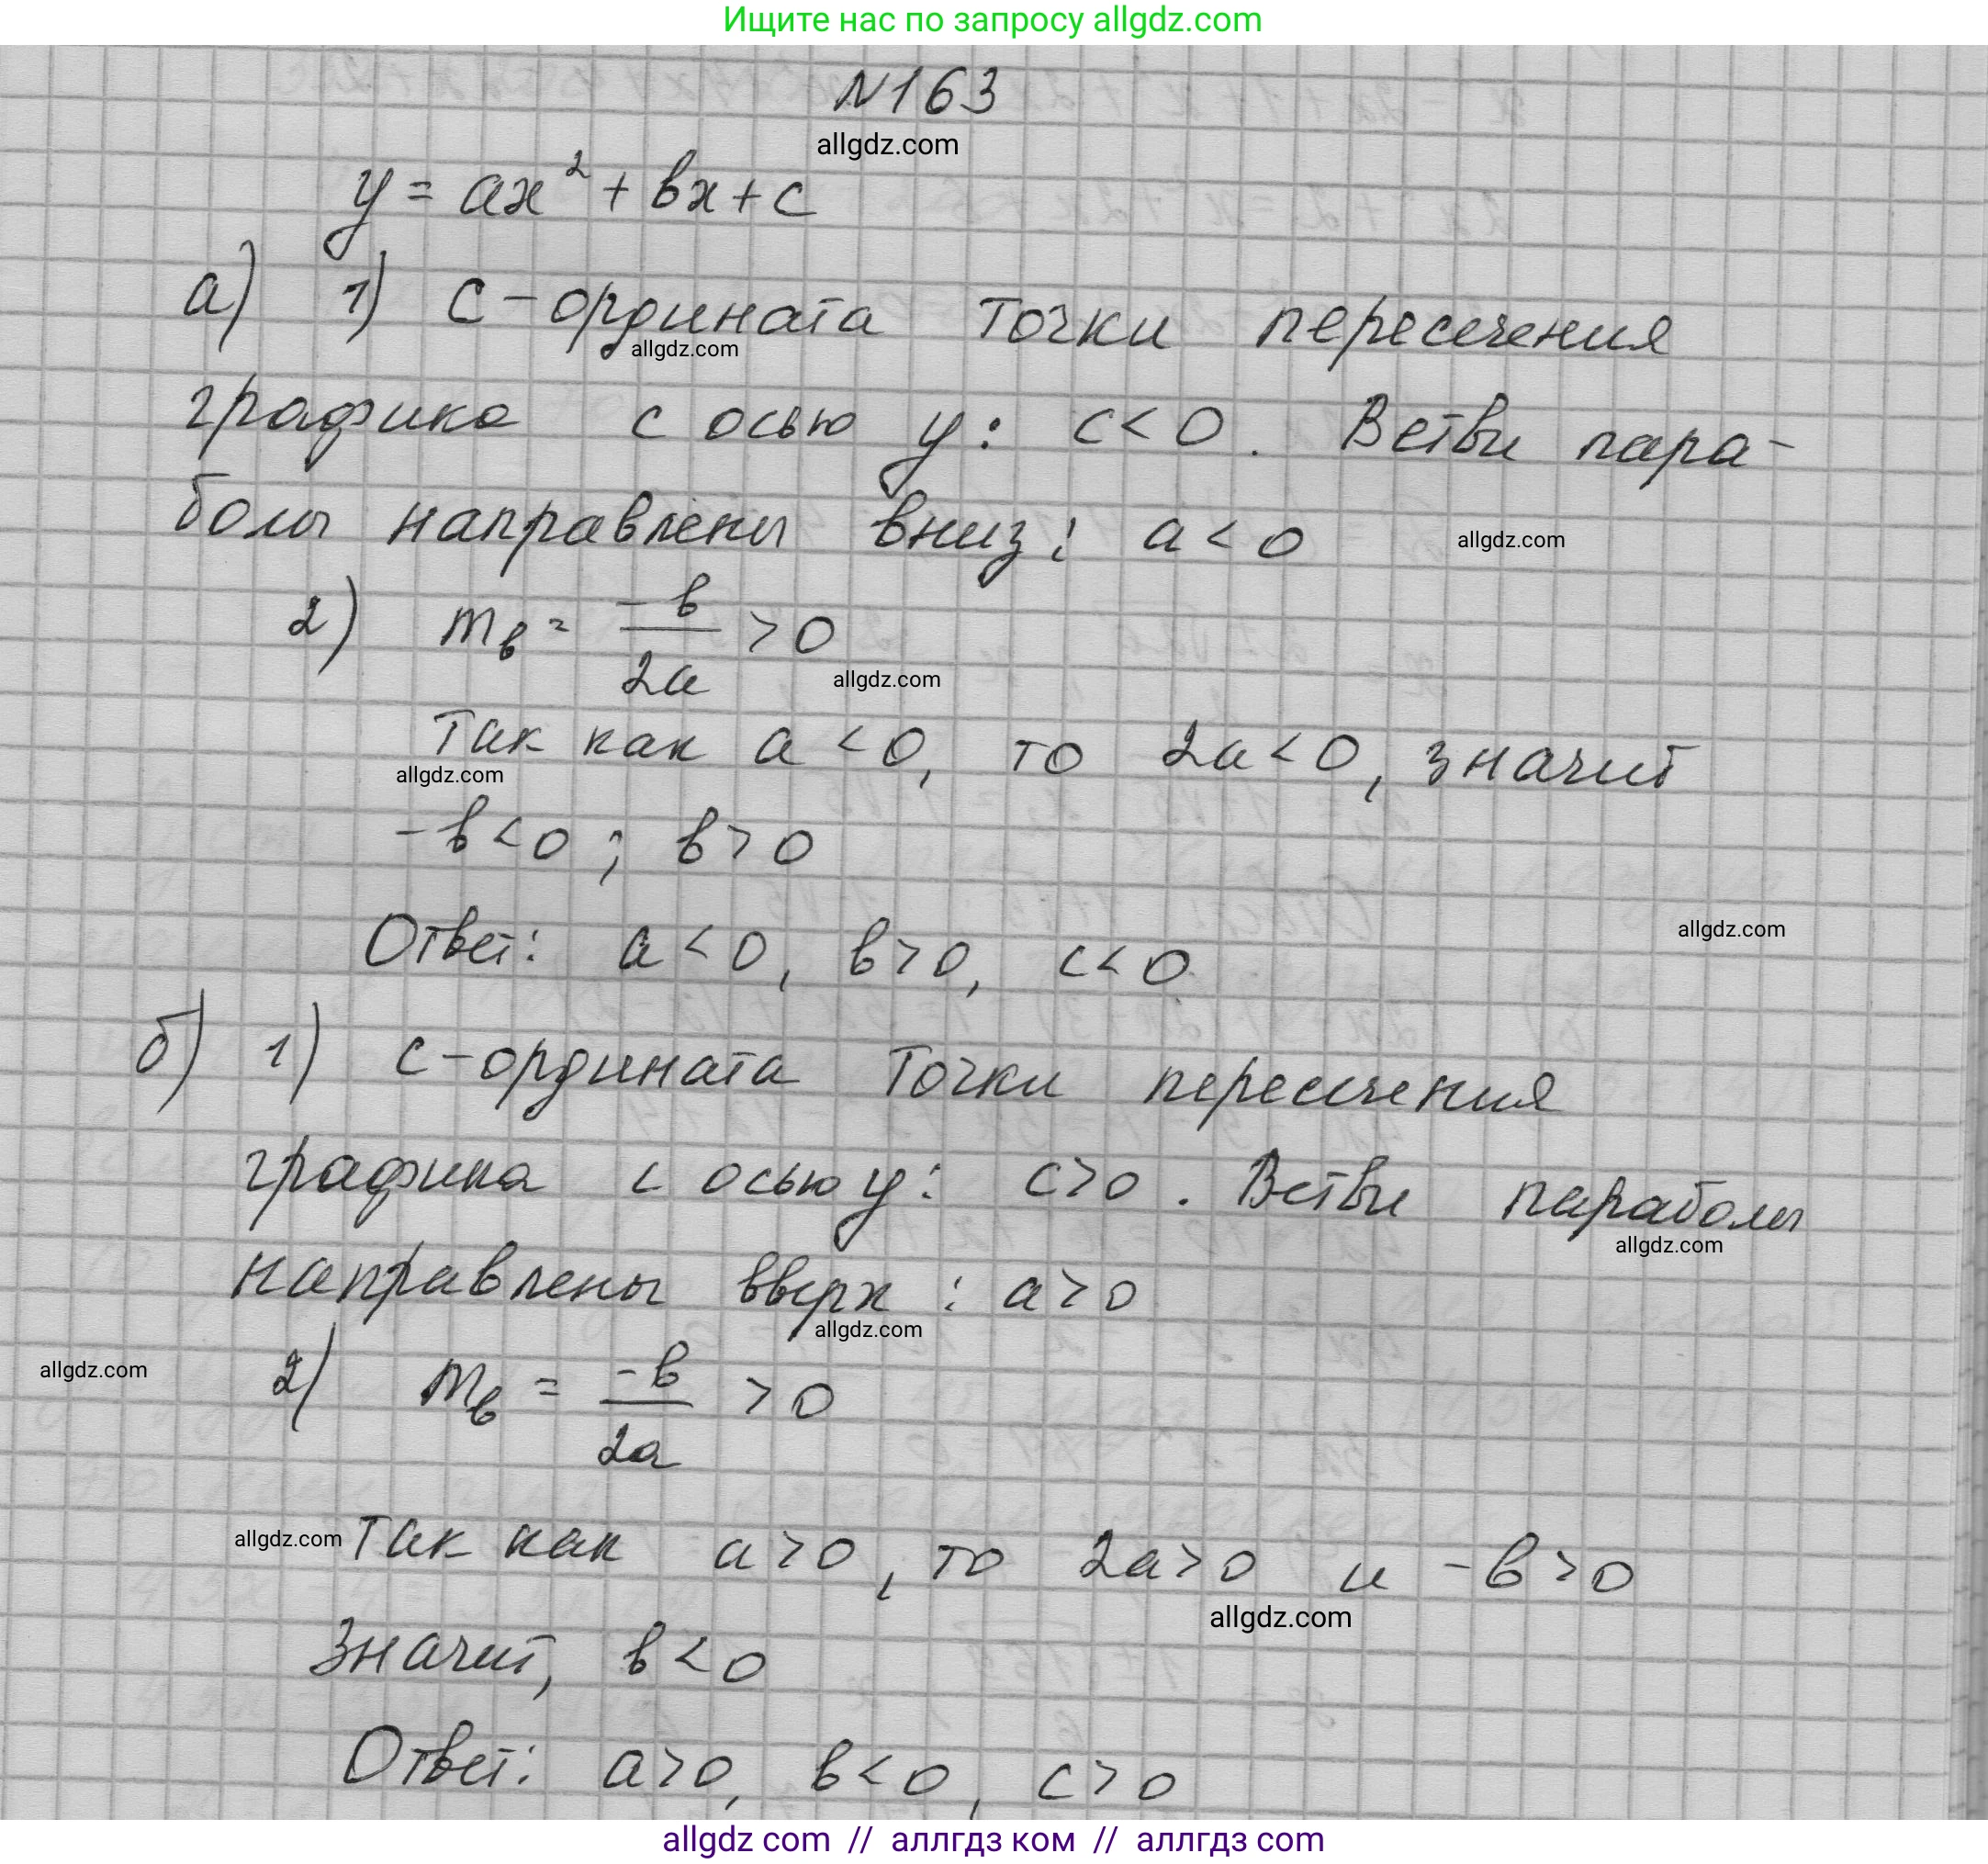 Ищите нас по запросу allgdz.com
N163
allgdz.com
y = ax² + bx + c
а) 1) C - ордината точки пересечения
allgdz.com
графика с осью y: c < 0. Ветви пара-
болы направлены вниз: a < 0
allgdz.com
2) m_b = -b/2a > 0
allgdz.com
Так как a < 0, то 2a < 0, значит
allgdz.com
-b < 0; b > 0
Ответ: a < 0, b > 0, c < 0.
allgdz.com
б) 1) c - ордината точки пересечения
графика с осью y: c > 0. Ветви параболы
allgdz.com
направлены вверх: a > 0
allgdz.com
allgdz.com
2) m_b = -b/2a > 0
allgdz.com Так как a > 0, то 2a > 0 и -b > 0
allgdz.com
значит, b < 0
Ответ: a > 0, b < 0, c > 0
allgdz com // аллгдз ком // аллгдз com